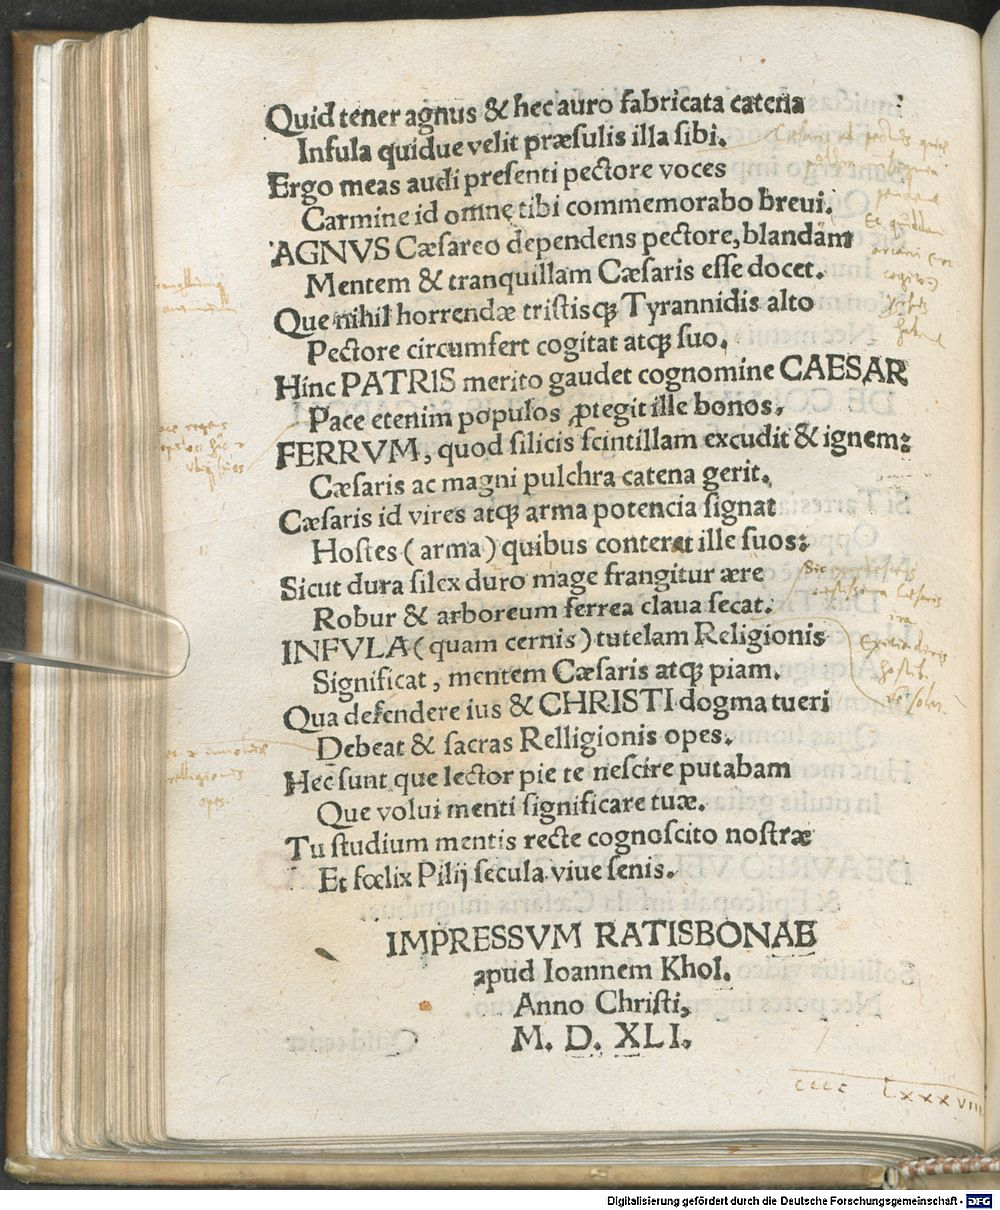 Quid tener agnus & hec auro fabricata catena
Infula quidue velit præsulis illa sibi.
Ergo meas audi presenti pectore voces
Carmine id omne tibi commemorabo breui.
AGNVS Cæsareo dependens pectore, blandam
Mentem & tranquillam Cæsaris esse docet.
Que nihil horrendæ tristisqꝫ Tyrannidis alto
Pectore circumfert cogitat atqꝫ suo.
Hinc PATRIS merito gaudet cognomine CAESAR
Pace etenim populos ꝓtegit ille bonos.
FERRVM, quod silicis scintillam excudit & ignem:
Cæsaris ac magni pulchra catena gerit.
Cæsaris id vires atqꝫ arma potencia signat
Hostes (arma) quibus conteret ille suos:
Sicut dura silex duro mage frangitur ære
Robur & arboreum ferrea claua secat.
INFVLA (quam cernis) tutelam Religionis
Significat, mentem Cæsaris atqꝫ piam.
Qua defendere ius & CHRISTI dogma tueri
Debeat & sacras Relligionis opes.
Hec sunt que lector pie te nescire putabam
Que volui menti significare tuæ.
Tu studium mentis recte cognoscito nostræ
Et fœlix Pilij secula viue senis.
IMPRESSVM RATISBONAE
apud Ioannem Khol.
Anno Christi,
M. D. XLI.
cccc Lxxxviii
Digitalisierung gefördert durch die Deutsche Forschungsgemeinschaft - DFG